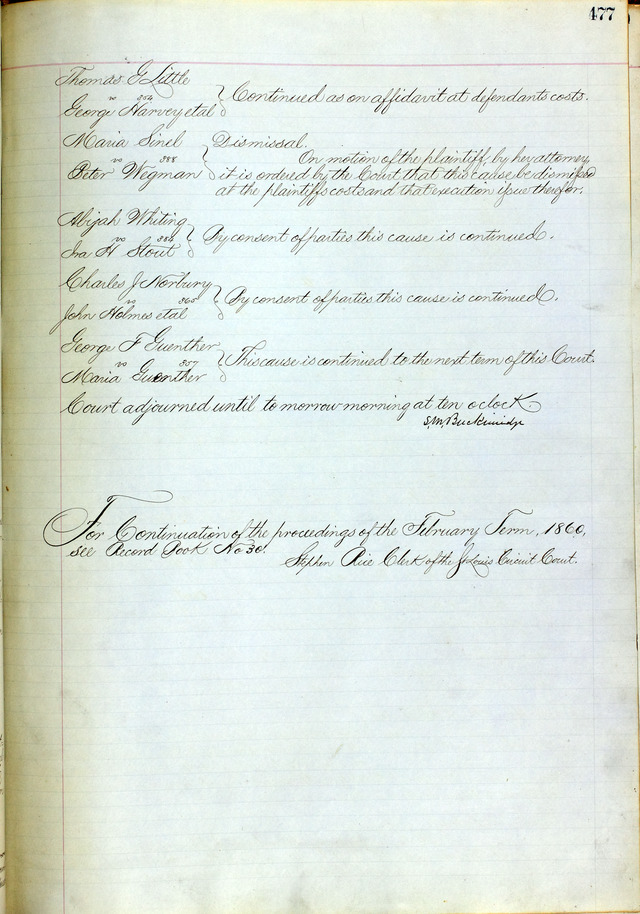 477
Thomas G Little
vs 354
George Harvey etal
Continued as on affidavit at defendants costs.
Maria Sinel
vs 388
Peter Wegman
Dismissal.
On motion of the plaintiff, by her attorney,
it is ordered by the Court that this cause be dismissed
at the plaintiffs costs and that execution issue therefor.
Abijah Whiting
vs 384
Ira H Stout
By consent of parties this cause is continued.
Charles J Norbury
vs 365
John Holmes etal
By consent of parties this cause is continued.
George F Guenther
vs 357
Maria Guenther
This cause is continued to the next term of this Court.
Court adjourned until to morrow morning at ten oclock
S.M. Breckinridge
For Continuation of the proceedings of the February Term, 1860,
see Record Book No 30.
Stephen Rice Clerk of the St Louis Circuit Court.